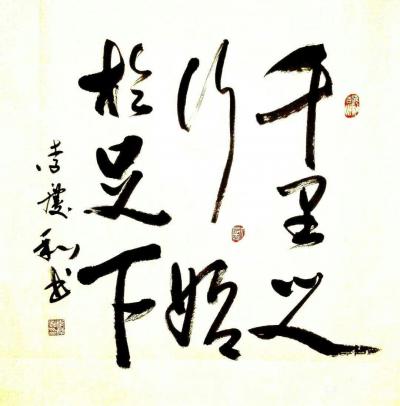 千里之
行始
於足下
李庆和书